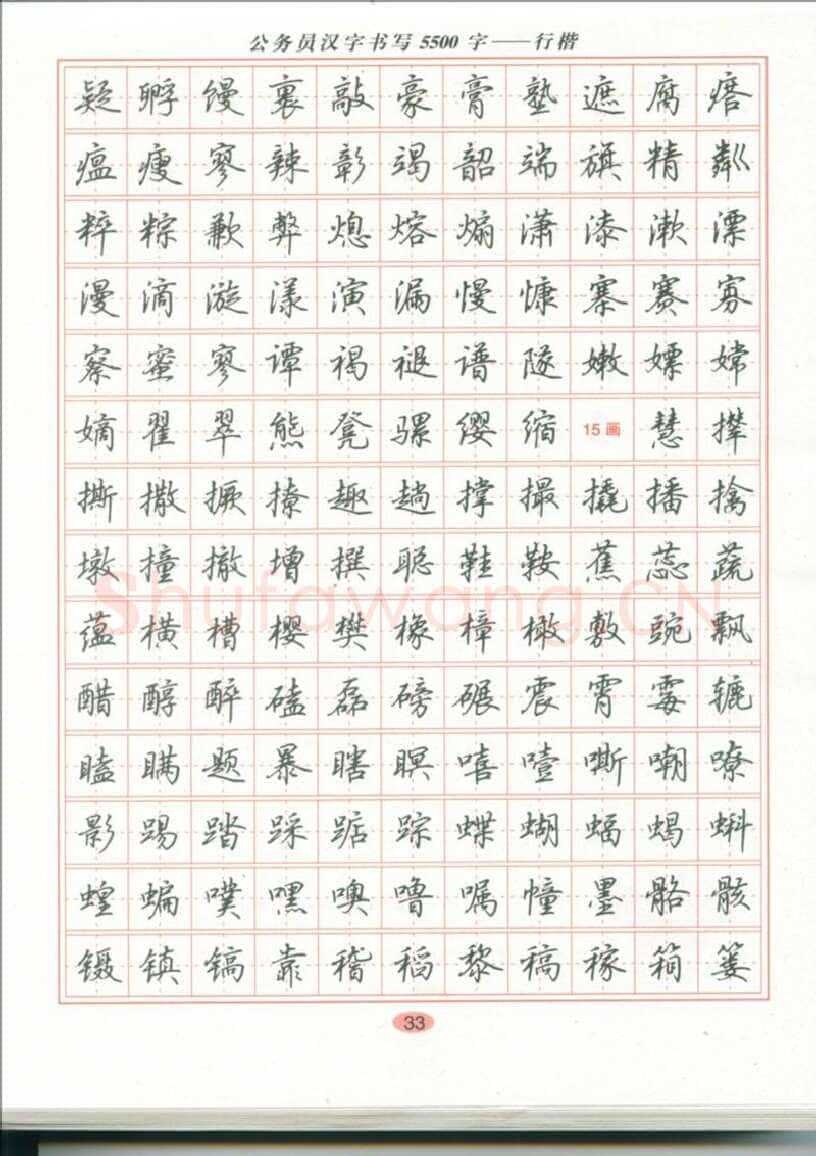 公务员汉字书写5500字——行楷
疑孵馒裹敲豪膏塾遮腐瘩
瘟瘦寥辣彰竭韶端旗精粼
粹粽歉弊熄熔煽潇漆漱漂
漫滴漩漾演漏慢慷寨赛寡
察蜜寥谭褐褪谱隧嫩嫖嫦
嫡翟翠熊凳骡缨缩15画慧撵
撕撒撅撩趣趟撑撮撬播擒
墩撞撤增撰聪鞋鞍蕉蕊蔬
蕴横槽樱樊橡樟橄敷豌飘
醋醇醉磕磊磅碾震霄霉辘
瞌瞒题暴瞎瞑嘻噎嘶嘲嘹
影踢踏踩踮踪蝶蝴蝠蝎蝌
蝗蝙噗嘿噢噜嘱幢墨骼骸
镊镇镐靠稽稻黎稿稼箱篓
33
Shufawang.CN